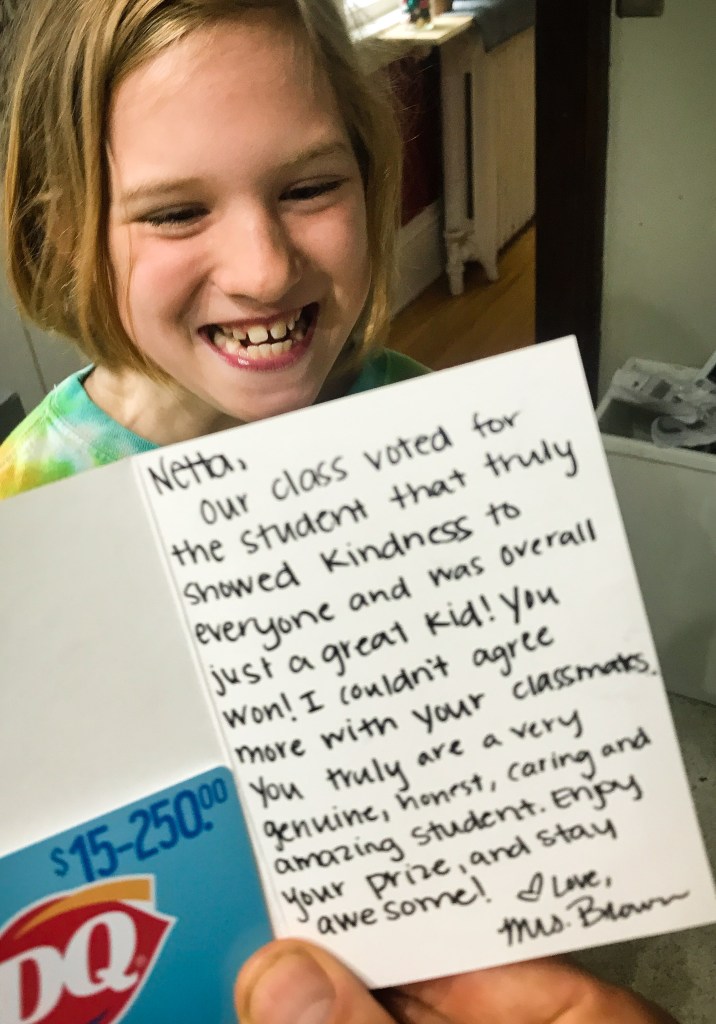 Netta,
our class voted for
the student that truly
showed kindness to
everyone and was overall
just a great kid! You
won! I couldn't agree
more with your classmates.
You truly are a very
genuine, honest, caring and
amazing student. Enjoy
your prize, and stay
awesome! ♡ Love,
Mrs. Brown
$15-250.00
DQ®